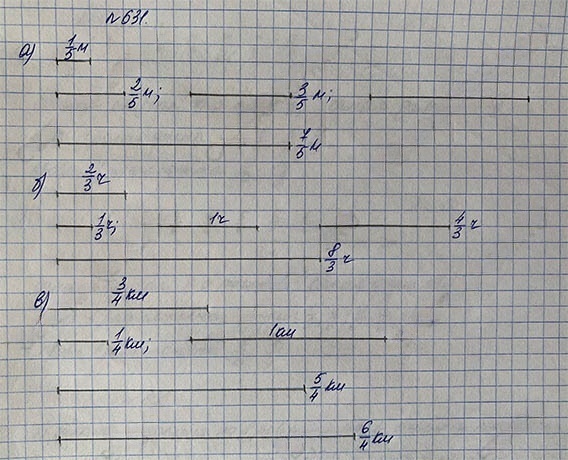 №631.
а) 1/5 м
2/5 м; 3/5 м;
7/5 м
б) 2/3 ч
1/3 ч; 1ч 4/3 ч
8/3 ч
в) 3/4 км
1/4 км; 1км
5/4 км
6/4 км